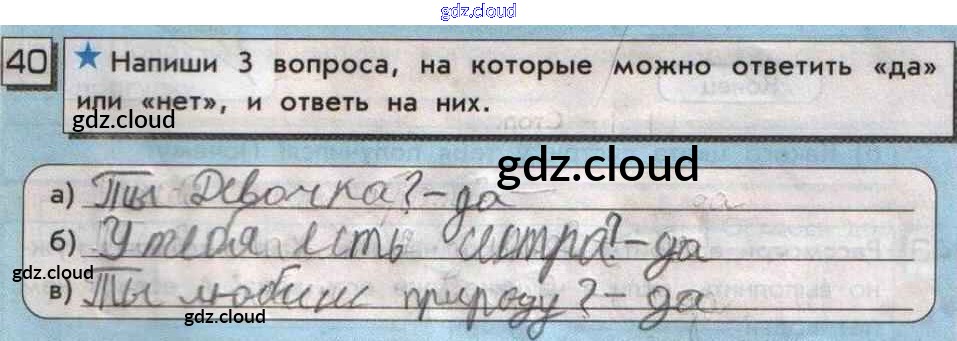 gdz.cloud
40 ★ Напиши 3 вопроса, на которые можно ответить «да»
или «нет», и ответь на них.
gdz.cloud
gdz.cloud
а) Ты Девочка? – да
б) У тебя есть сестра? – да
gdz.cloud
в) Ты любишь природу? – да
gdz.cloud